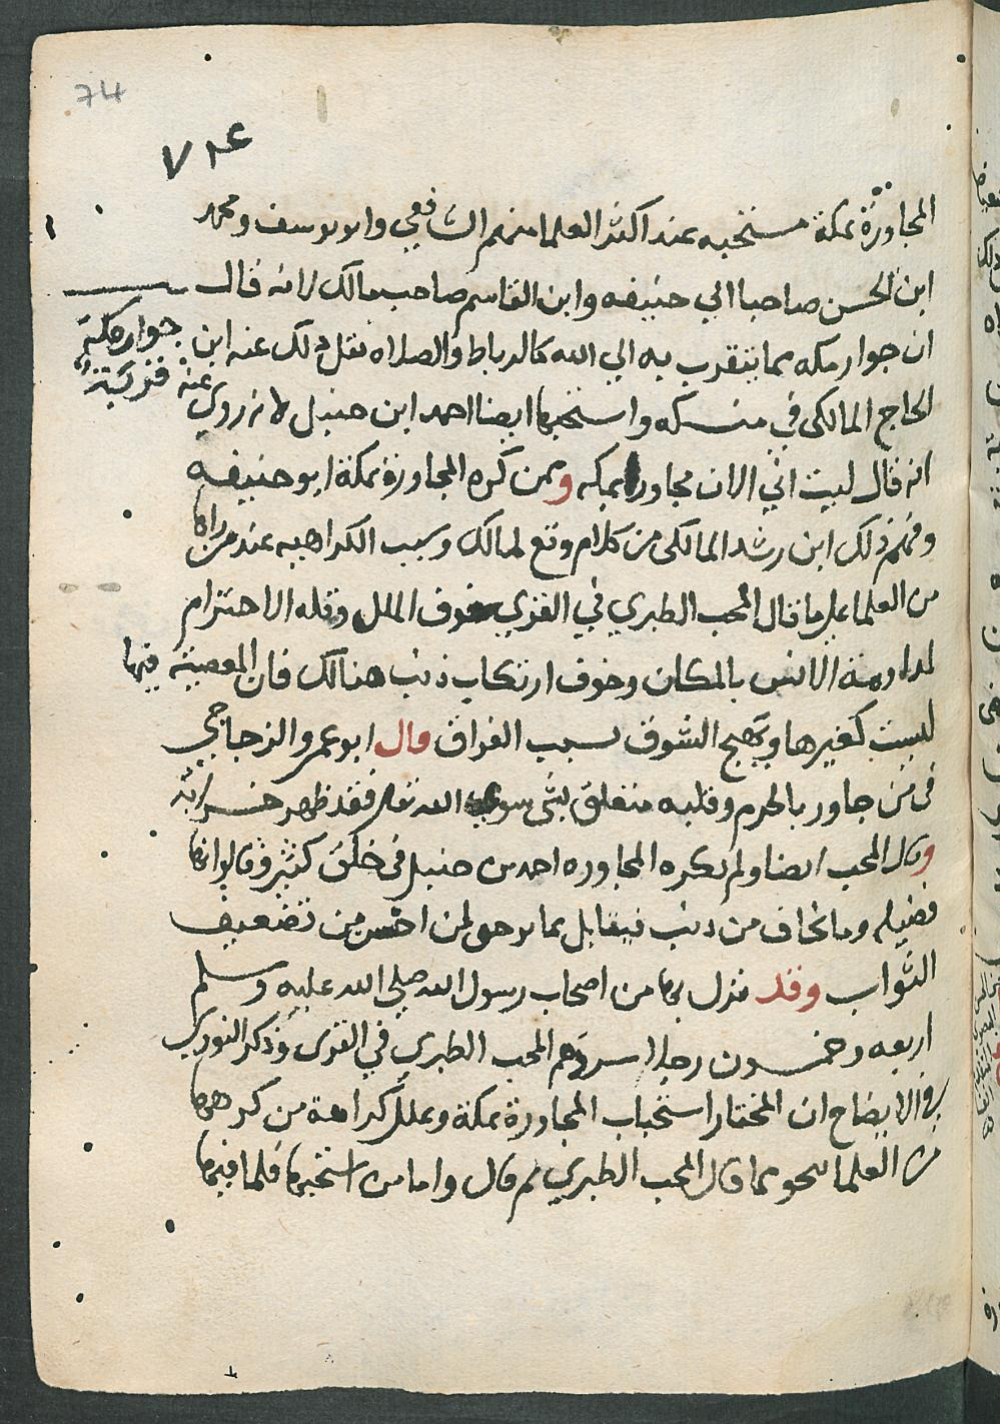 74
٧٢٤
المجاورة بمكة مستحبه عند اكثر العلما منهم الشافعي وابو يوسف ومحمد
ابن الحسن صاحبا ابي حنيفه وابن القاسم صاحب مالك لانه قال
ان جوار مكه مما يتقرب به الي الله كالرباط والصلاه نقل ذلك عنه ابن
جوار مكة
قربة
الحاج المالكي في منسكه واستحبها ايضا احمد ابن حنبل لانه روي عنه
انه قال ليت اني الان مجاور بمكه وممن كره المجاورة بمكة ابو حنيفه
وفهم ذلك ابن رشد المالكي من كلام وقع لمالك وسبب الكراهيه عند من راها
من العلما علي ما قال المحب الطبري في القري خوف الملل وقله الاحترام
لمداومة الانس بالمكان وخوف ارتكاب ذنب هنالك فان المعصية فيها
ليست كغيرها وتهيج الشوق بسبب الفراق وقال ابو عمرو الزجاجي
في من جاور بالحرم وقلبه متعلق بشي سوي الله تعالى فقد ظهر خسرانه
وقال المحب ايضا ولم يكره المجاوره احمد بن حنبل في خلق كثير وقالوا انها
فضيله وما يخاف من ذنب فيقابل بما يرجي لمن احسن من تضعيف
الثواب وقد نزل بها من اصحاب رسول الله صلي الله عليه وسلم
اربعه وخمسون رجلا سردهم المحب الطبري في القرى وذكر النووي
في الايضاح ان المختار استحباب المجاورة بمكة وعلل كراهة من كرهها
من العلما بنحو مما قال المحب الطبري ثم قال واما من استحبها فلما فيها